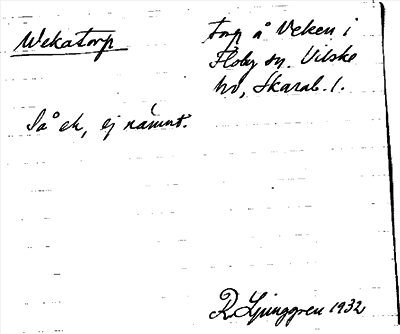 Wekatorp
torp å Veken i
Floby sn. Vilske
hd, Skarab. l.
Så ek, ej nämnt.
R Ljunggren 1932